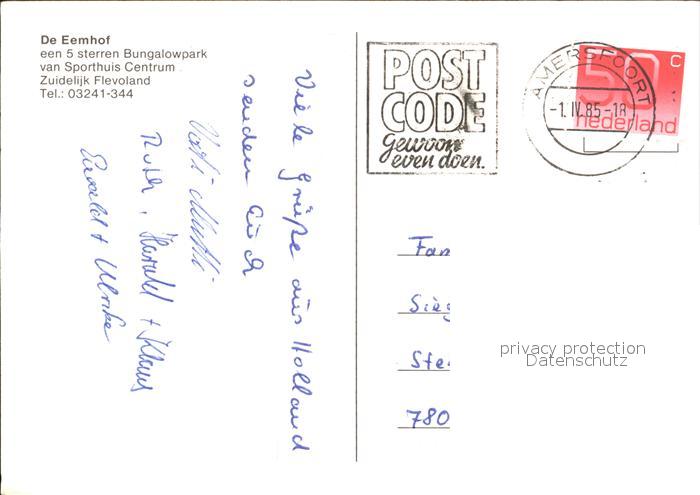 De Eemhof
een 5 sterren Bungalowpark
van Sporthuis Centrum
Zuidelijk Flevoland
Tel.: 03241-344
Viele Grüße aus Holland
senden Euch
Vati Mutti
Ruth, Harald + Klaus
Ewald + Ulrike
POST
CODE
Gewoon
even doen.
AMERSFOORT
-1.IV.85-18
50 C
nederland
Fam
Sieg
Ste
780
privacy protection
Datenschutz